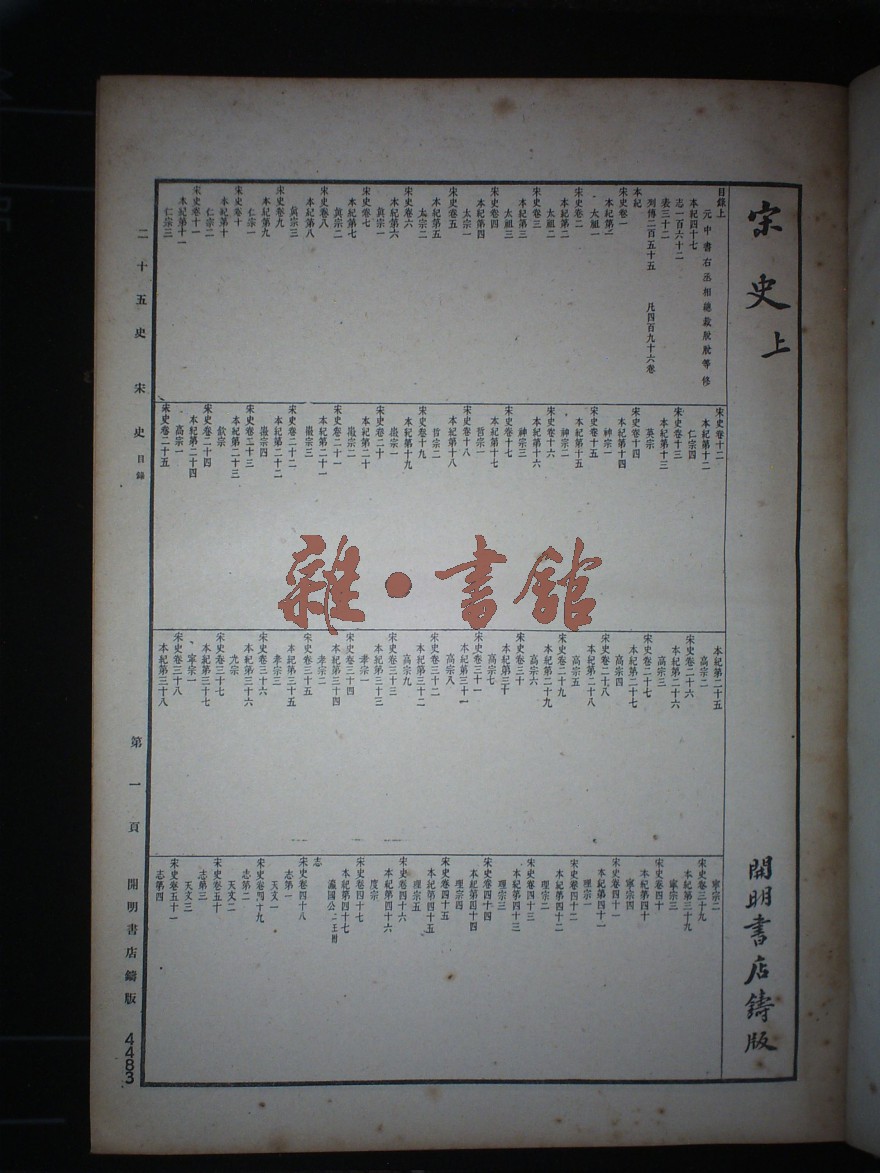 宋史上
開明書店鑄版
目錄上
元中書右丞相總裁脫脫等修
本紀四十七
志一百六十二
表三十二
列傳二百五十五 凡四百九十六卷
本紀
宋史卷一
本紀第一
太祖一
宋史卷二
本紀第二
太祖二
宋史卷三
本紀第三
太祖三
宋史卷四
本紀第四
太宗一
宋史卷五
本紀第五
太宗二
宋史卷六
本紀第六
眞宗一
宋史卷七
本紀第七
眞宗二
宋史卷八
本紀第八
眞宗三
宋史卷九
本紀第九
仁宗一
宋史卷十
本紀第十
仁宗二
宋史卷十一
本紀第十一
仁宗三
宋史卷十二
本紀第十二
仁宗四
宋史卷十三
本紀第十三
英宗
宋史卷十四
本紀第十四
神宗一
宋史卷十五
本紀第十五
神宗二
宋史卷十六
本紀第十六
神宗三
宋史卷十七
本紀第十七
哲宗一
宋史卷十八
本紀第十八
哲宗二
宋史卷十九
本紀第十九
徽宗一
宋史卷二十
本紀第二十
徽宗二
宋史卷二十一
本紀第二十一
徽宗三
宋史卷二十二
本紀第二十二
徽宗四
宋史卷二十三
本紀第二十三
欽宗
宋史卷二十四
本紀第二十四
高宗一
宋史卷二十五
本紀第二十五
高宗二
宋史卷二十六
本紀第二十六
高宗三
宋史卷二十七
本紀第二十七
高宗四
宋史卷二十八
本紀第二十八
高宗五
宋史卷二十九
本紀第二十九
高宗六
宋史卷三十
本紀第三十
高宗七
宋史卷三十一
本紀第三十一
高宗八
宋史卷三十二
本紀第三十二
高宗九
宋史卷三十三
本紀第三十三
孝宗一
宋史卷三十四
本紀第三十四
孝宗二
宋史卷三十五
本紀第三十五
孝宗三
宋史卷三十六
本紀第三十六
光宗
宋史卷三十七
本紀第三十七
寧宗一
宋史卷三十八
本紀第三十八
寧宗二
宋史卷三十九
本紀第三十九
寧宗三
宋史卷四十
本紀第四十
寧宗四
宋史卷四十一
本紀第四十一
理宗一
宋史卷四十二
本紀第四十二
理宗二
宋史卷四十三
本紀第四十三
理宗三
宋史卷四十四
本紀第四十四
理宗四
宋史卷四十五
本紀第四十五
理宗五
宋史卷四十六
本紀第四十六
度宗
宋史卷四十七
本紀第四十七
瀛國公二王附
志
宋史卷四十八
志第一
天文一
宋史卷四十九
志第二
天文二
宋史卷五十
志第三
天文三
宋史卷五十一
志第四
二十五史 宋史 目錄 第一頁 開明書店鑄版 4483
雜·書館